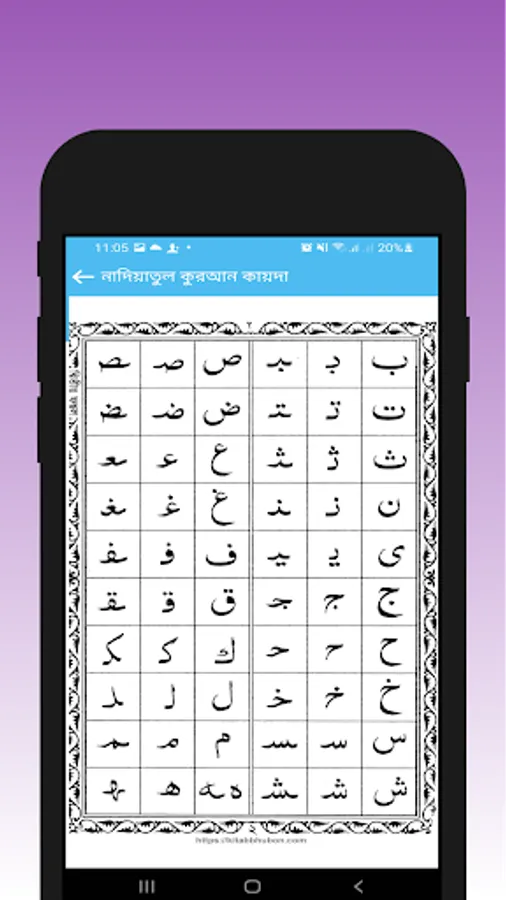 11:05 • 20%
নাদিয়াতুল কুরআন কায়দা
٢
ب بـ ـبـ ص صـ ـصـ
ت تـ ـتـ ض ضـ ـضـ
ث ثـ ـثـ ع عـ ـعـ
ن نـ ـنـ غ غـ ـغـ
ى يـ ـيـ ف فـ ـفـ
ج جـ ـجـ ق قـ ـقـ
ح حـ ـحـ ك كـ ـكـ
خ خـ ـخـ ل لـ ـلـ
س سـ ـسـ م مـ ـمـ
ش شـ ـشـ ه ـه هـ ـهـ
https://kitabbhubon.com